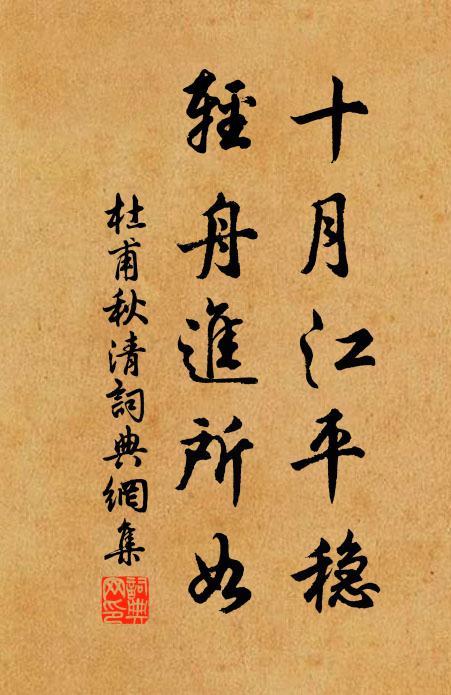 十月江平稳
輕舟進所如
杜甫秋清詞典網集
詞典網印